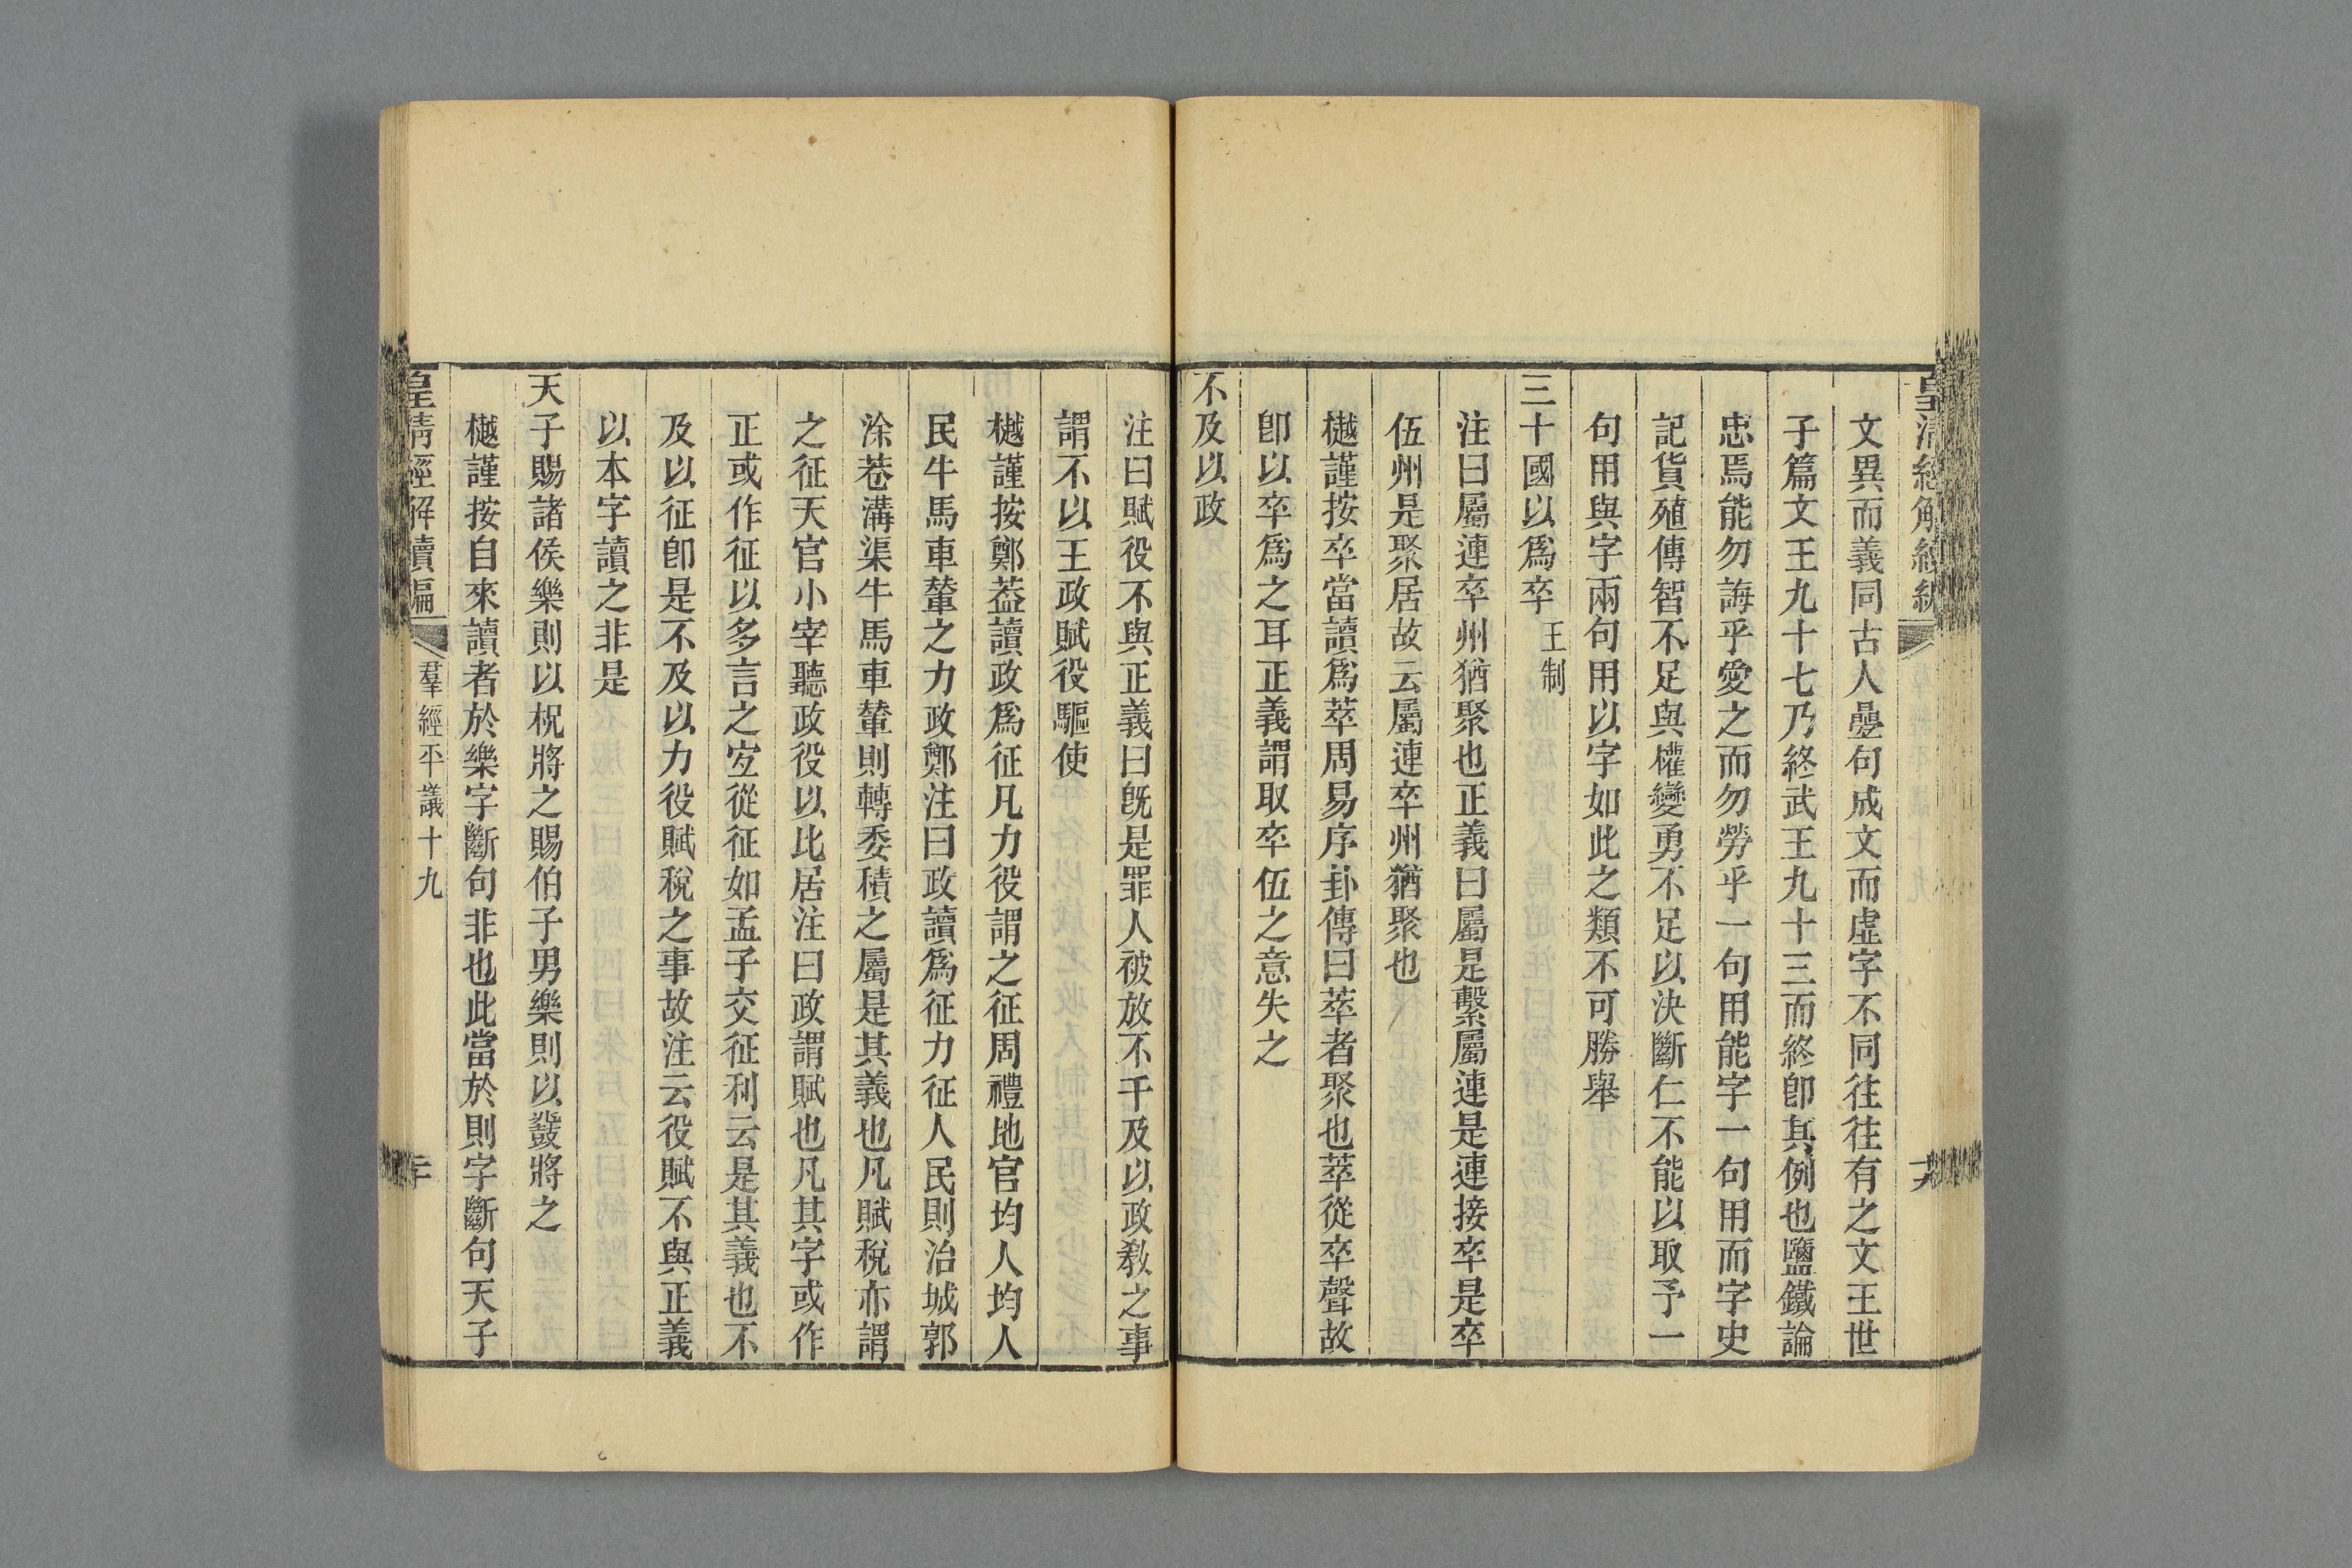 皇清經解續編
十九
文異而義同古人疊句成文而虛字不同往往有之文王世
子篇文王九十七乃終武王九十三而終卽其例也鹽鐵論
忠焉能勿誨乎愛之而勿勞乎一句用能字一句用而字史
記貨殖傳智不足與權變勇不足以決斷仁不能以取予一
句用與字兩句用以字如此之類不可勝舉
三十國以爲卒 王制
注曰屬連卒州猶聚也正義曰屬是繫屬連是連接卒是卒
伍州是聚居故云屬連卒州猶聚也
樾謹按卒當讀爲萃周易序卦傳曰萃者聚也萃從卒聲故
卽以卒爲之耳正義謂取卒伍之意失之
不及以政
注曰賦役不與正義曰旣是罪人被放不干及以政敎之事
謂不以王政賦役驅使
樾謹按鄭葢讀政爲征凡力役謂之征周禮地官均人均人
民牛馬車輦之力政鄭注曰政讀爲征力征人民則治城郭
涂巷溝渠牛馬車輦則轉委積之屬是其義也凡賦稅亦謂
之征天官小宰聽政役以比居注曰政謂賦也凡其字或作
正或作征以多言之宐從征如孟子交征利云是其義也不
及以征卽是不及以力役賦稅之事故注云役賦不與正義
以本字讀之非是
天子賜諸侯樂則以柷將之賜伯子男樂則以鼗將之
樾謹按自來讀者於樂字斷句非也此當於則字斷句天子
皇清經解續編
羣經平議十九